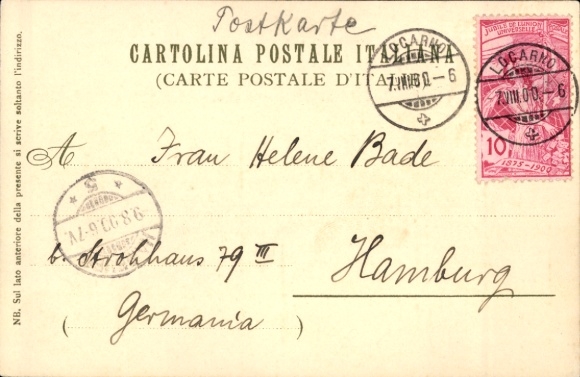 Postkarte
CARTOLINA POSTALE ITALIANA
(CARTE POSTALE D'ITALIE)
JUBILÉ DE L'UNION
UNIVERSELLE
LOCARNO
7.VIII.00.-6
LOCARNO
7.VIII.00.-6
10
1875-1900
A Frau Helene Bade
9.8.00.6-7V.
b. Strohhaus 79 III
Hamburg
(Germania)
NB. Sul lato anteriore della presente si scrive soltanto l'indirizzo.